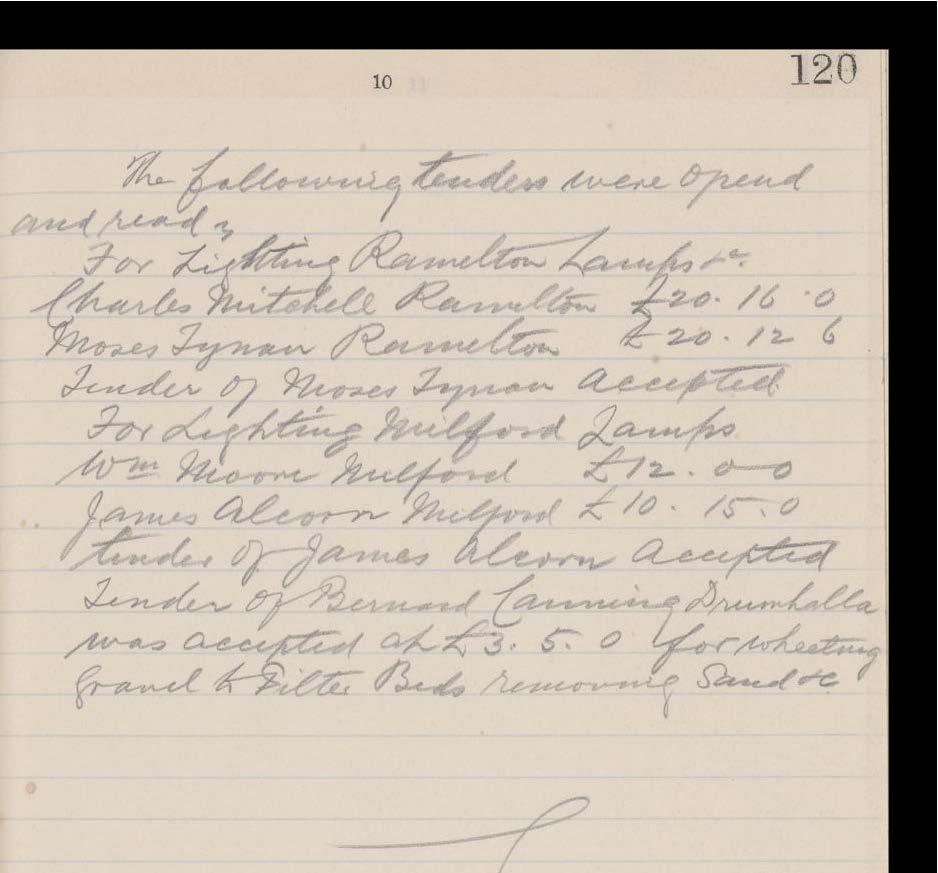 10
120
The following tenders were opend
and read
For Lighting Ramelton Lamps &c.
Charles Mitchell Ramelton £20. 16. 0
Moses Tynan Ramelton £20. 12 6
Tender of Moses Tynan Accepted
For Lighting Milford Lamps
Wm Moore Milford £12. 0-0
James Alcorn Milford £10. 15. 0
tender of James Alcorn Accepted
Tender of Bernard Canning Drumhalla
was accepted at £3. 5. 0 for wheeling
gravel to Filter Beds removing Sand &c